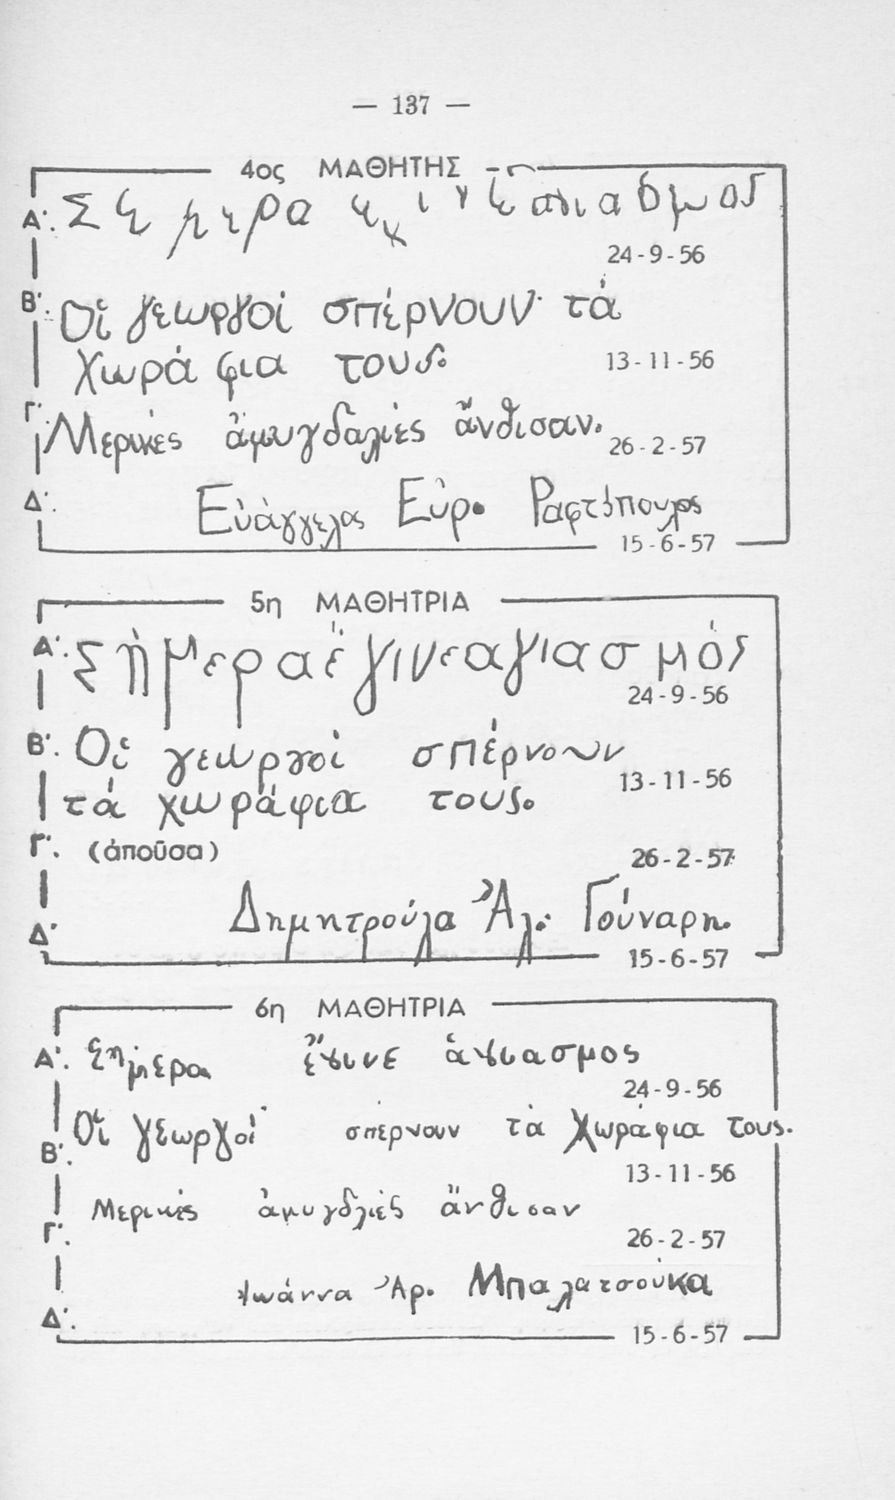 — 137 —
4ος ΜΑΘΗΤΗΣ
Α΄.
24-9-56
Β΄. Οἱ γεωργοί σπέρνουν τά
χωράφια τους.
13-11-56
Γ΄. Μερικές ἀμυγδαλιές ἄνθισαν.
26-2-57
Δ΄. Εὐάγγελος Εὐρ. Ραφτόπουλος
15-6-57
5η ΜΑΘΗΤΡΙΑ
Α΄. Σήμερα ἔγινε αγιασμός
24-9-56
Β΄. Οἱ γεωργοί σπέρνουν
13-11-56
τά χωράφια τους.
Γ΄. (ἀποῦσα)
26-2-57
Δ΄ Δημητρούλα Ἀλ. Γούναρη.
15-6-57
6η ΜΑΘΗΤΡΙΑ
Α΄. Σήμερα ἔγινε ἁγιασμος
24-9-56
Β΄. Οἱ γεωργοί σπέρνουν τά χωράφια τους.
13-11-56
Γ΄. Μερικές ἀμυγδλιές ἄνθισαν
26-2-57
Δ΄. Ἰωάννα Ἀρ. Μπαλατσούκα
15-6-57